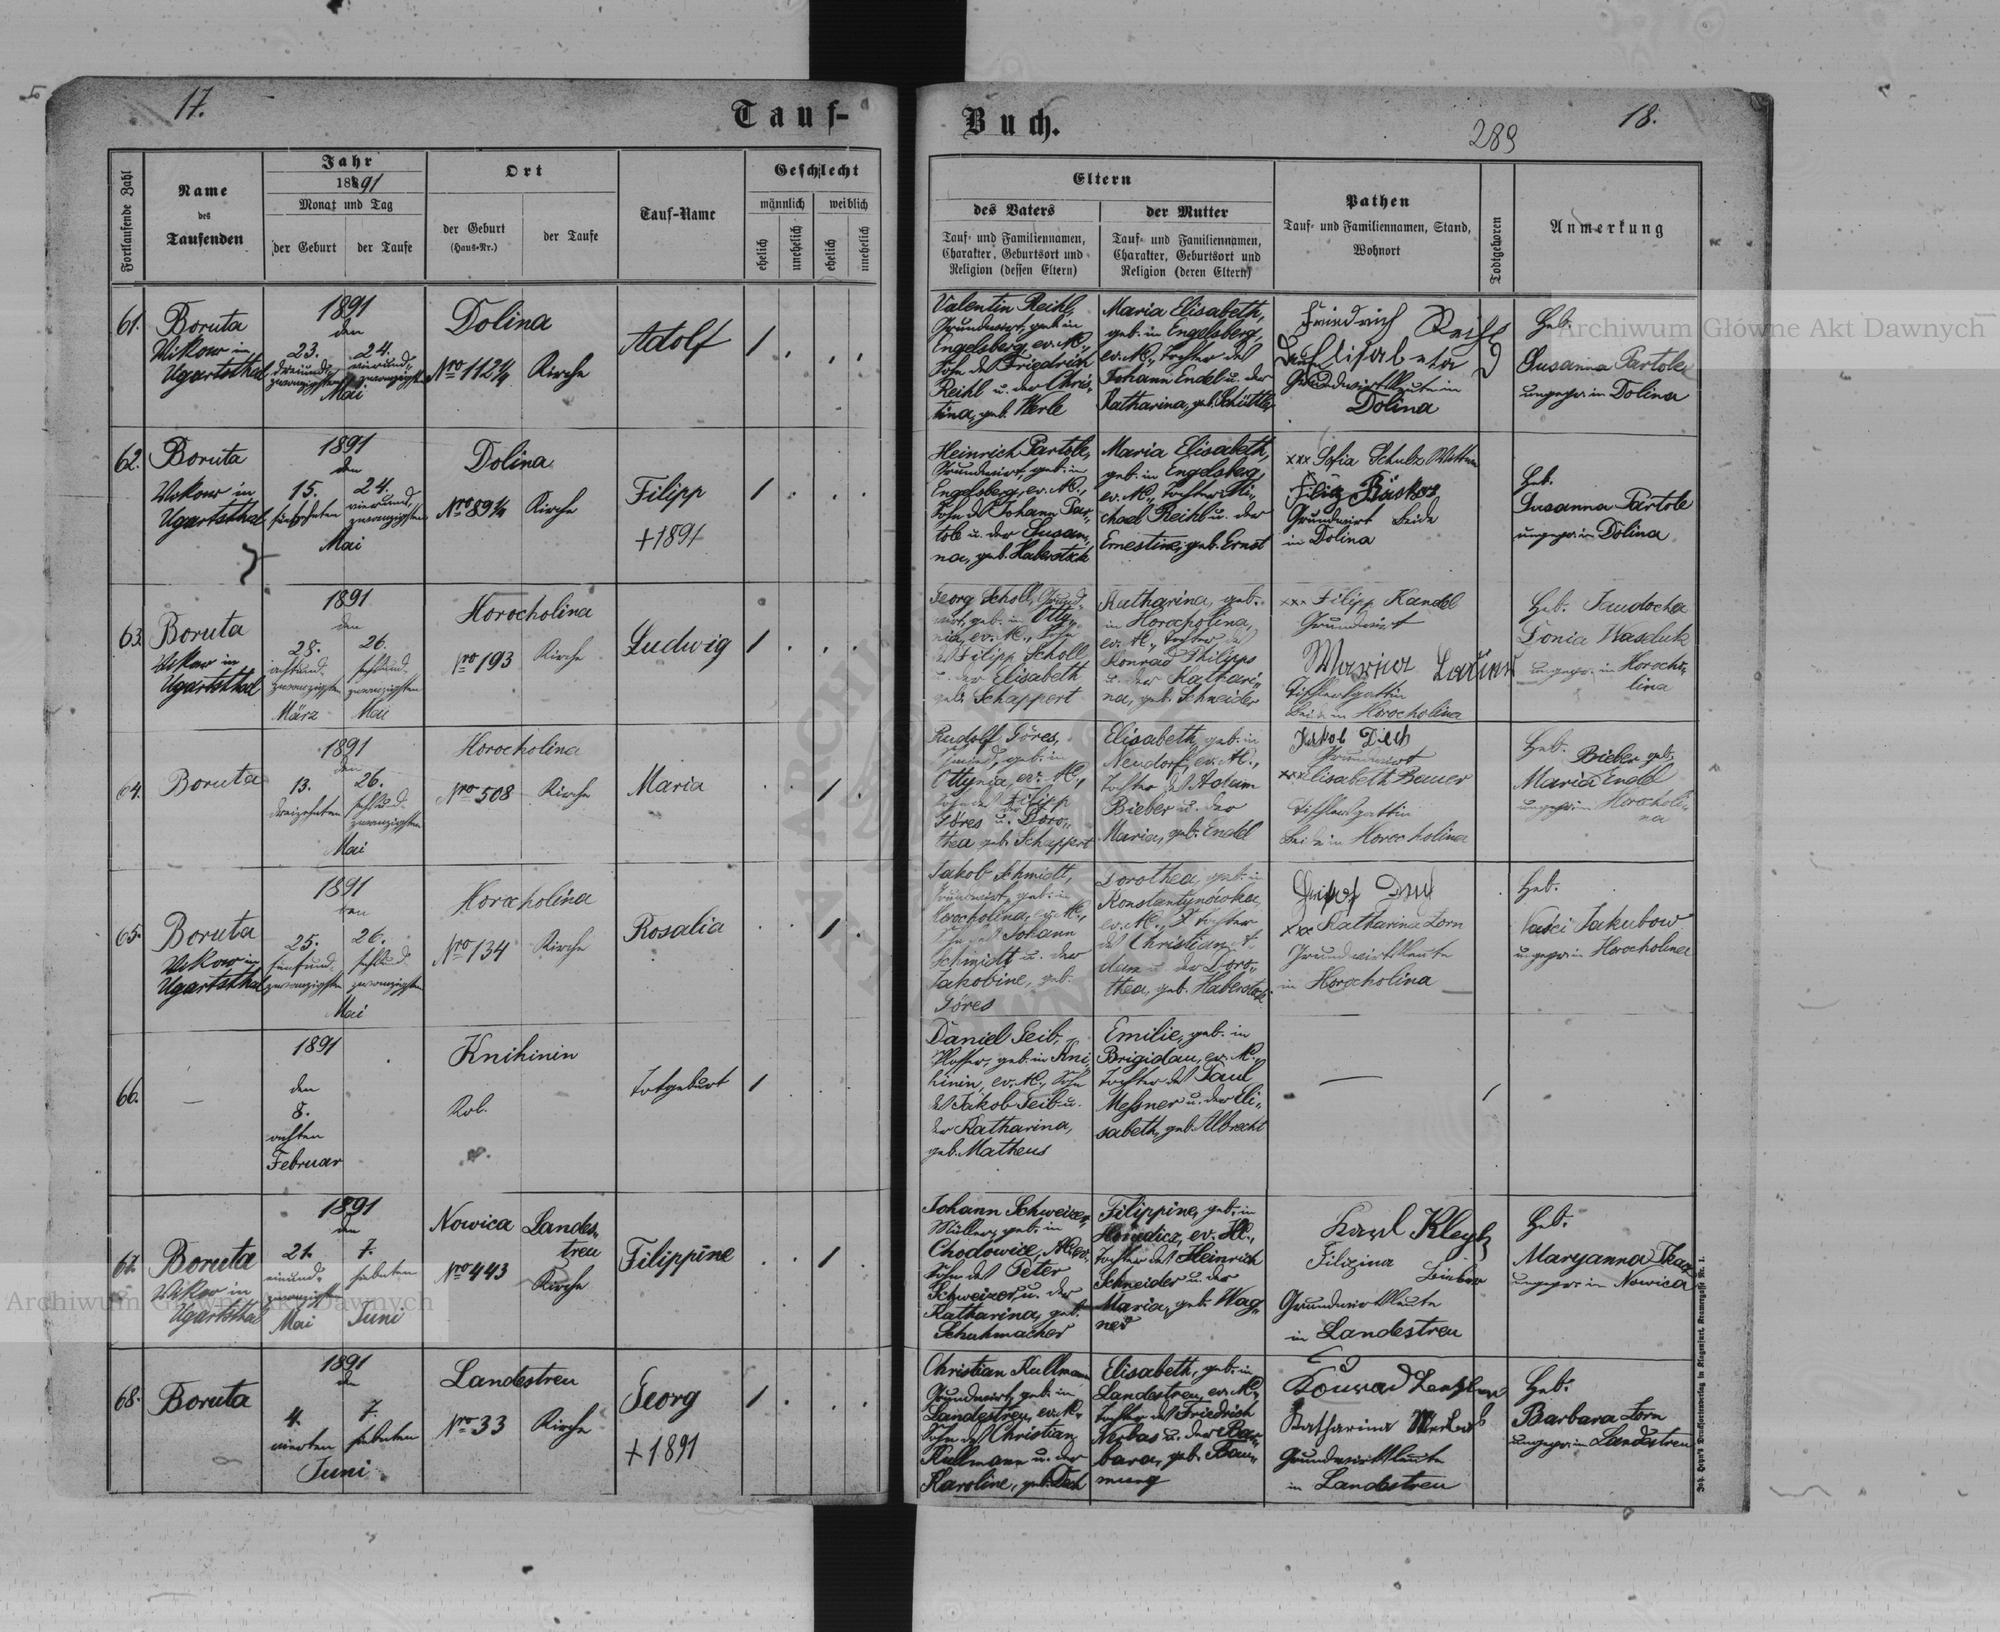 17.
Tauf-
Buch.
289
18.
Fortlaufende Zahl
Name
des
Taufenden
Jahr
1891
Monat und Tag
der Geburt
der Taufe
Ort
der Geburt
(Haus-Nr.)
der Taufe
Tauf-Name
Geschlecht
männlich
weiblich
ehelich
unehelich
ehelich
unehelich
Eltern
des Vaters
Tauf- und Familiennamen,
Charakter, Geburtsort und
Religion (dessen Eltern)
der Mutter
Tauf- und Familiennamen,
Charakter, Geburtsort und
Religion (deren Eltern)
Pathen
Tauf- und Familiennamen, Stand,
Wohnort
Todtgeboren
Anmerkung
61.
Boruta
Vikow in
Ugartsthal
1891
den
23.
dreiund-
zwanzigsten
24.
vierund-
zwanzigsten
Mai
Dolina
Nro 112¼
Kirche
Adolf
1
Valentin Reihl,
Grundwirt, geb. in
Engelsberg, ev. A.,
Sohn des Friedrich
Reihl u. der Chris-
tina, geb. Werle
Maria Elisabeth,
geb. in Engelsberg,
ev. A., Tochter des
Johann Endel u. der
Katharina, geb. Schüttler
Friedrich
Elisabeta
Grundwirtsleute in
Dolina
Heb.
Susanna Partole
ungepr. in Dolina
62.
Boruta
Vikow in
Ugartsthal
1891
den
15.
fünfzehnten
24.
vierund-
zwanzigsten
Mai
Dolina
Nro 89¼
Kirche
Filipp
+1891
1
Heinrich Partole,
Grundwirt, geb. in
Engelsberg, ev. A.,
Sohn des Johann Par-
tole u. der Susan-
na, geb.
Maria Elisabeth,
geb. in Engelsberg,
ev. A., Tochter Mi-
chael Reihl u. der
Ernestine, geb. Ernst
xxx Sofia Schulz
Grundwirt beide
in Dolina
Heb.
Susanna Partole
ungepr. in Dolina
63.
Boruta
Vikow in
Ugartsthal
1891
den
28.
achtund-
zwanzigsten
März
26.
sechsund-
zwanzigsten
Mai
Horocholina
Nro 193
Kirche
Ludwig
1
Georg Scholl, Grund-
wirt, geb. in Otty-
nia, ev. A., Sohn
des Filipp Scholl
u. der Elisabeth
geb. Schappert
Katharina, geb.
in Horocholina,
ev. A., Tochter des
Konrad Philipps
u. der Kathari-
na, geb. Schneider
xxx Filipp Kandel
Grundwirt
Tischlersgattin
beide in Horocholina
Heb. Jaudocha
Fonia Wasduk
ungepr. in Horocho-
lina
64.
Boruta
1891
den
13.
dreizehnten
26.
sechsund-
zwanzigsten
Mai
Horocholina
Nro 508
Kirche
Maria
1
Rudolf Göres,
Schmied, geb. in
Ottynia, ev. A.,
Sohn des Filipp
Göres u. der Doro-
thea geb. Schappert
Elisabeth, geb. in
Neudorf, ev. A.,
Tochter des Adam
Bieber u. der
Maria, geb. Endel
Jakob Dech
Grundwirt
xxx Elisabeth Bauer
Tischlersgattin
beide in Horocholina
Heb. Bieber geb.
Maria Endel
ungepr. in Horocholi-
na
65.
Boruta
Vikow in
Ugartsthal
1891
den
25.
fünfund-
zwanzigsten
26.
sechsund-
zwanzigsten
Mai
Horocholina
Nro 134
Kirche
Rosalia
1
Jakob Schmidt,
Grundwirt, geb. in
Horocholina, ev. A.,
Sohn des Johann
Schmidt u. der
Jakobine, geb.
Göres
Dorothea, geb. in
Konstantynówka,
ev. A., Tochter
des Christian A-
dam u. der Doro-
thea, geb. Haberstock
xxx Katharina Zorn
Grundwirtsleute
in Horocholina
Heb.
Vasci Jakubow
ungepr. in Horocholina
66.
1891
den
8.
achten
Februar
Knihinin
Kol.
Totgeburt
1
Daniel Seib,
Schlosser, geb. in Kni-
hinin, ev. A., Sohn
des Jakob Seib u.
der Katharina,
geb. Matheus
Emilie, geb. in
Brigidau, ev. A.,
Tochter des Paul
Meßner u. der Eli-
sabeth, geb. Albrecht
67.
Boruta
Vikow in
Ugartsthal
1891
den
21.
einund-
zwanzigsten
Mai
7.
siebenten
Juni
Nowica
Nro 443
Landes-
treu
Kirche
Filippine
1
Johann Schweizer,
Müller, geb. in
Chodowice,
Sohn des Peter
Schweizer u. der
Katharina, geb.
Schuhmacher
Filippine, geb. in
ev. H.,
Tochter des Heinrich
Schneider u. der
Maria, geb. Wag-
ner
Karl
Filipina
Grundwirtsleute
in Landestreu
Heb.
Maryanna
ungepr. in Nowica
68.
Boruta
1891
den
4.
vierten
7.
siebenten
Juni
Landestreu
Nro 33
Kirche
Georg
+1891
1
Christian Kullmann
Grundwirt, geb. in
Landestreu, ev. A.,
Sohn des Christian
Kullmann u. der
Karoline, geb. Dech
Elisabeth, geb. in
Landestreu, ev. A.,
Tochter des Friedrich
Nerbas u. der Bar-
bara, geb. Bau-
mung
Konrad
Katharina Nerbas
Grundwirtsleute
in Landestreu
Heb.
Barbara Zorn
ungepr. in Landestreu
Archiwum Główne Akt Dawnych
Archiwum Główne Akt Dawnych